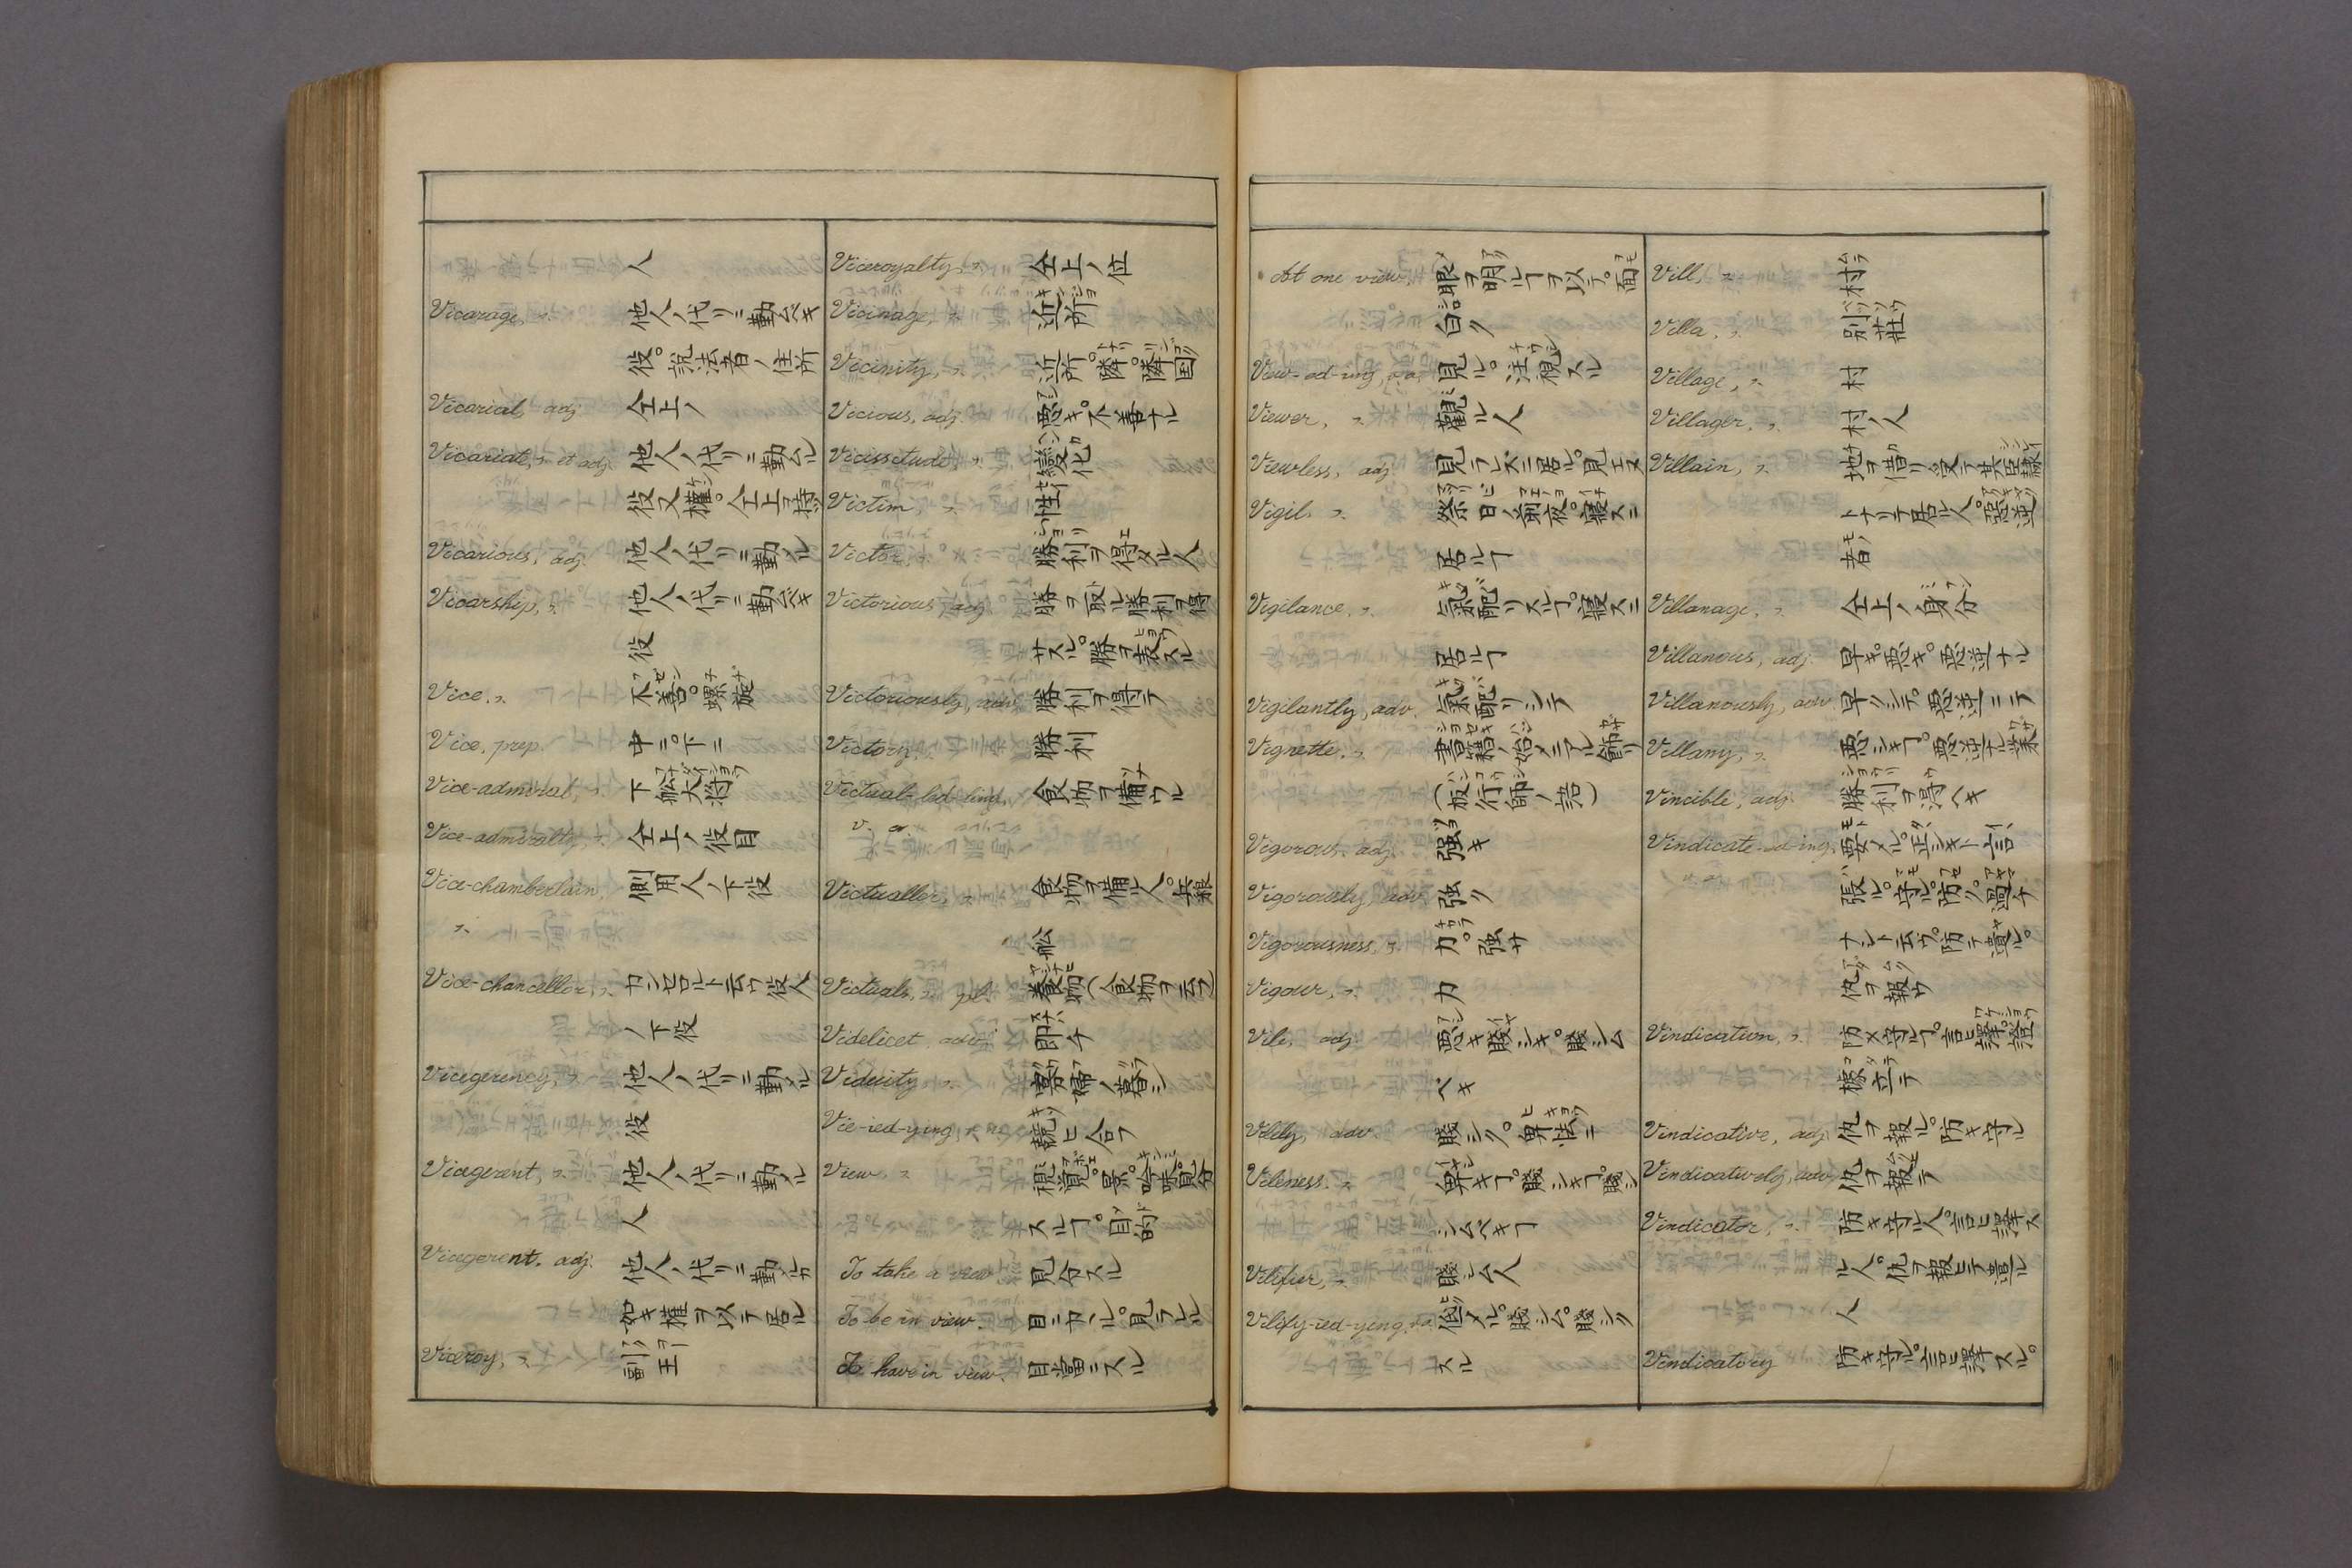 人
Vicarage, n. 他人ノ代リニ勤ムベキ
役。説法者ノ住所
Vicarial, adj. 仝上ノ
Vicariate, n. et adj. 他人ノ代リニ勤ムル
役又權。仝上ヲ持
Vicarious, adj. 他人ノ代リニ勤ル
Vicarship, n. 他人ノ代リニ勤ムベキ
役
Vice, n. 不善。螺旋
Vice, prep. 中ニ。下ニ
Vice-admiral, n. 下舩大將
Vice-admiralty, n. 仝上ノ役目
Vice-chamberlain, 側用人ノ下役
n.
Vice-chancellor, n. カンセロルト云フ役人
ノ下役
Vicegerency, n. 他人ノ代リニ勤ル
役
Vicegerent, n. 他人ノ代リニ勤ル
人
Vicegerent, adj. 他人ノ代リニ勤ルカ
如キ權ヲ以テ居ル
Viceroy, n. 副王
Viceroyalty, n. 仝上ノ位
Vicinage, n. 近所
Vicinity, n. 近所。隣。隣国
Vicious, adj. 悪キ。不善ナル
Vicissitude, n. 變化
Victim, n. 牲
Victor, n. 勝利ヲ得タル人
Victorious, adj. 勝ヲ取ル。勝利ヲ得
サスル。勝ヲ表スル
Victoriously, adv. 勝利ヲ得テ
Victory, n. 勝利
Victual-led-ling, 食物ヲ備ウル
v. a.
Victualler, n. 食物ヲ備ル人。兵粮
舩
Victuals, n. pl. 養物(食物ヲ云フ)
Videlicet, adv. 即チ
Viduity, n. 寡婦ノ暮シ
Vie-ied-ying, v. n. 競ヒ合フ
View, n. 視。覚。景。吟味。見分
スルヿ。目的
To take a view 見分スル
To be in view. 目ニアル。見ラルル
To have in view. 目當ニスル
At one view. 眼ヲ明ルヿヲ以テ。面
白ク
View-ed-ing, v.a. 見ル。注視スル
Viewer, n. 觀ル人
Viewless, adj. 見ラレズニ居ル。見エヌ
Vigil, n. 祭日ノ前夜。寢スニ
居ルヿ
Vigilance, n. 氣配リスルヿ。寢スニ
居ルヿ
Vigilantly, adv. 氣配リシテ
Vignette, n. 書籍ノ始メニアル飾リ
(板行師ノ語)
Vigorous, adj. 强キ
Vigorously, adv. 强ク
Vigorousness, n. 力。强サ
Vigour, n. 力
Vile, adj. 悪キ。賤シキ。賤シム
ベキ
Vilely, adv. 賤シク。卑怯ニ
Vileness, n. 卑キヿ。賤シキヿ。賤シ
シムベキヿ
Vilifier, n. 賤シム人
Vilify-ied-ying, v.a. 低メル。賤シム。賤シク
スル
Vill, n. 村
Villa, n. 別荘
Village, n. 村
Villager, n. 村ノ人
Villain, n. 地ヲ借リ受テ其臣隷
トナリテ居ル人。惡逆
者
Villanage, n. 仝上ノ身分
Villanous, adj. 卑キ。悪キ。悪逆ナル
Villanously, adv. 卑クシテ。悪逆ニテ
Villany, n. 悪シキヿ。悪逆ナル業
Vincible, adj. 勝利ヲ得ヘキ
Vindicate-ed-ing, 要メル。正シキト言ヒ
v. a. 張ル。守ル。防ク。過チ
ナシト云フ。防テ遣ル。
仇ヲ報ウ
Vindication, n. 防メ守ルヿ。言ヒ譯。證
據立テ
Vindicative, adj. 仇ヲ報ル。防キ守ル
Vindicatively, adv. 仇ヲ報テ
Vindicator, n. 防キ守ル人。言ヒ譯ス
ル人。仇ヲ報ヒテ遣ル
人
Vindicatory 防キ守ル。言ヒ譯スル。